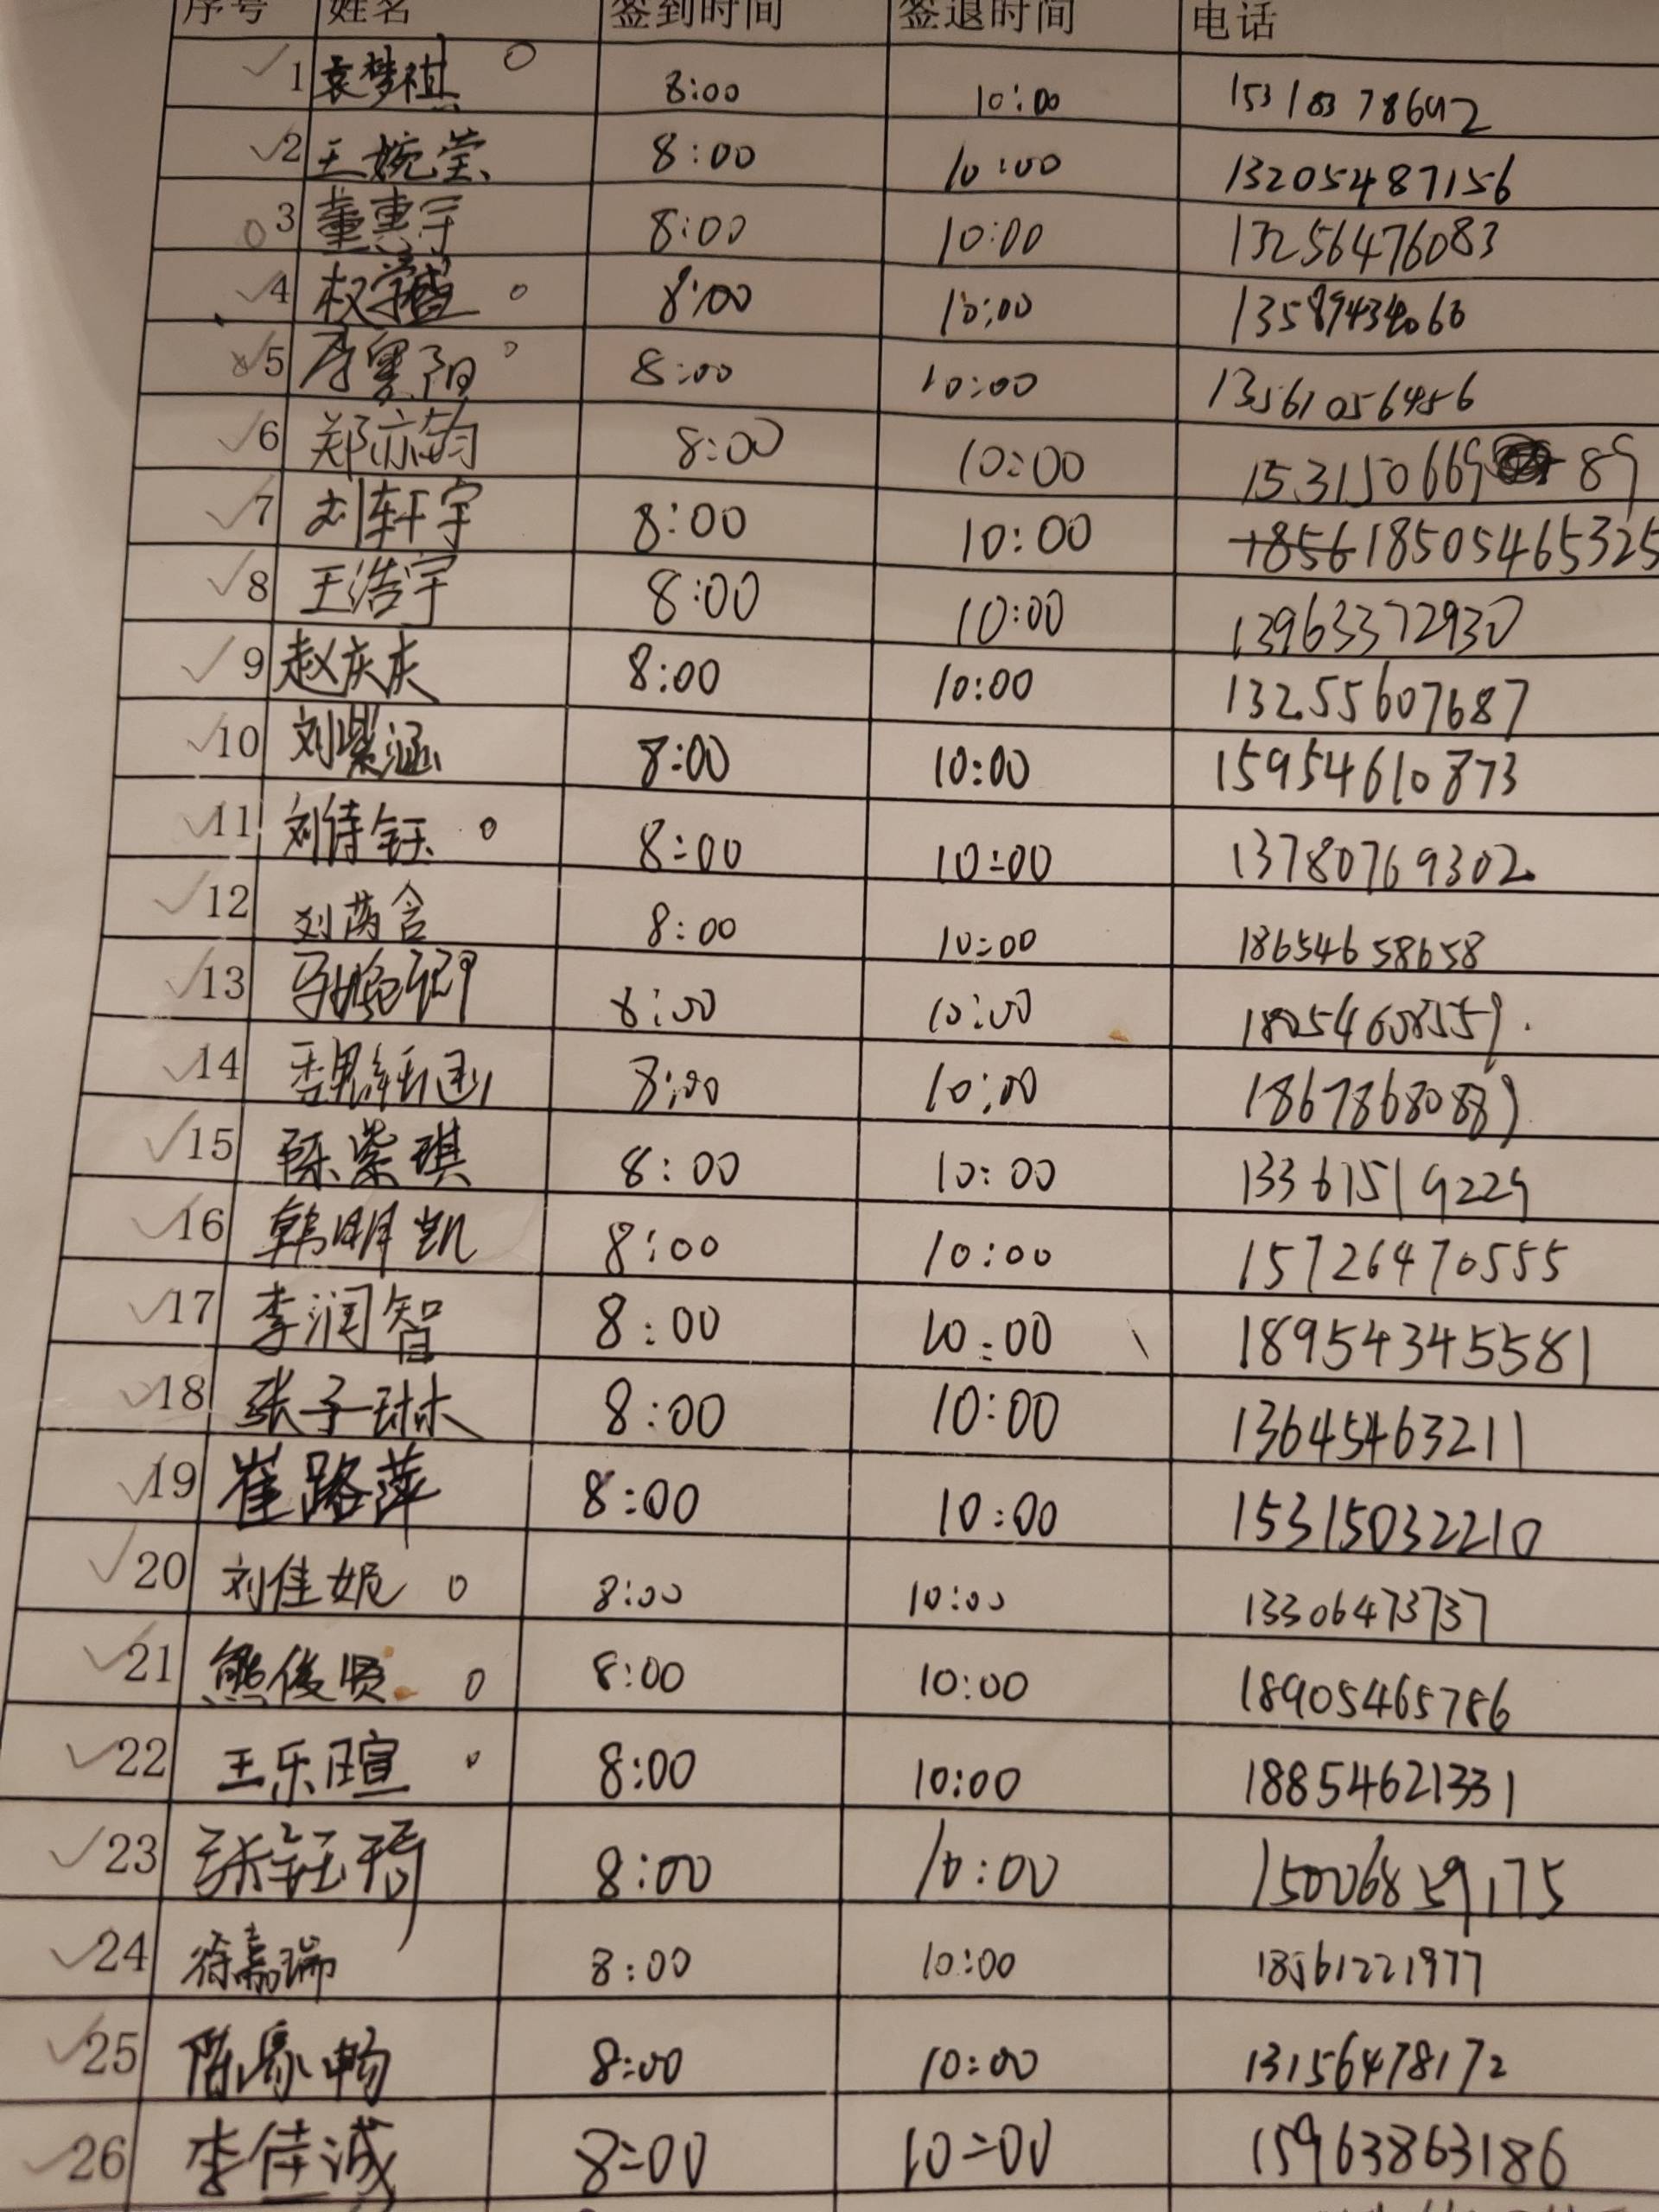 序号 姓名 签到时间 签退时间 电话
1 袁梦祺 8:00 10:00
2 王婉莹 8:00 10:00 13205487156
3 董惠宇 8:00 10:00 13256476083
4 8:00 10:00
5 8:00 10:00 13561056456
6 郑亦韵 8:00 10:00 153150669 89
7 刘轩宇 8:00 10:00 1856 18505465325
8 王浩宇 8:00 10:00 13963372930
9 赵庆庆 8:00 10:00 13255607687
10 刘紫涵 8:00 10:00 15954610873
11 刘诗钰 8:00 10:00 13780769302
12 刘芮含 8:00 10:00 18654658658
13 8:00 10:00
14 8:00 10:00
15 陈紫琪 8:00 10:00 13361519229
16 韩明凯 8:00 10:00 15726470555
17 李润智 8:00 10:00 18954345581
18 张子琳 8:00 10:00 13645463211
19 崔路萍 8:00 10:00 15315032210
20 刘佳妮 8:00 10:00 13306473737
21 熊俊贤 8:00 10:00 18905465786
22 王乐暄 8:00 10:00 18854621331
23 张钰琦 8:00 10:00 15006859175
24 徐嘉瑞 8:00 10:00 18561221977
25 8:00 10:00 13156478172
26 李佳诚 8:00 10:00 15963863186